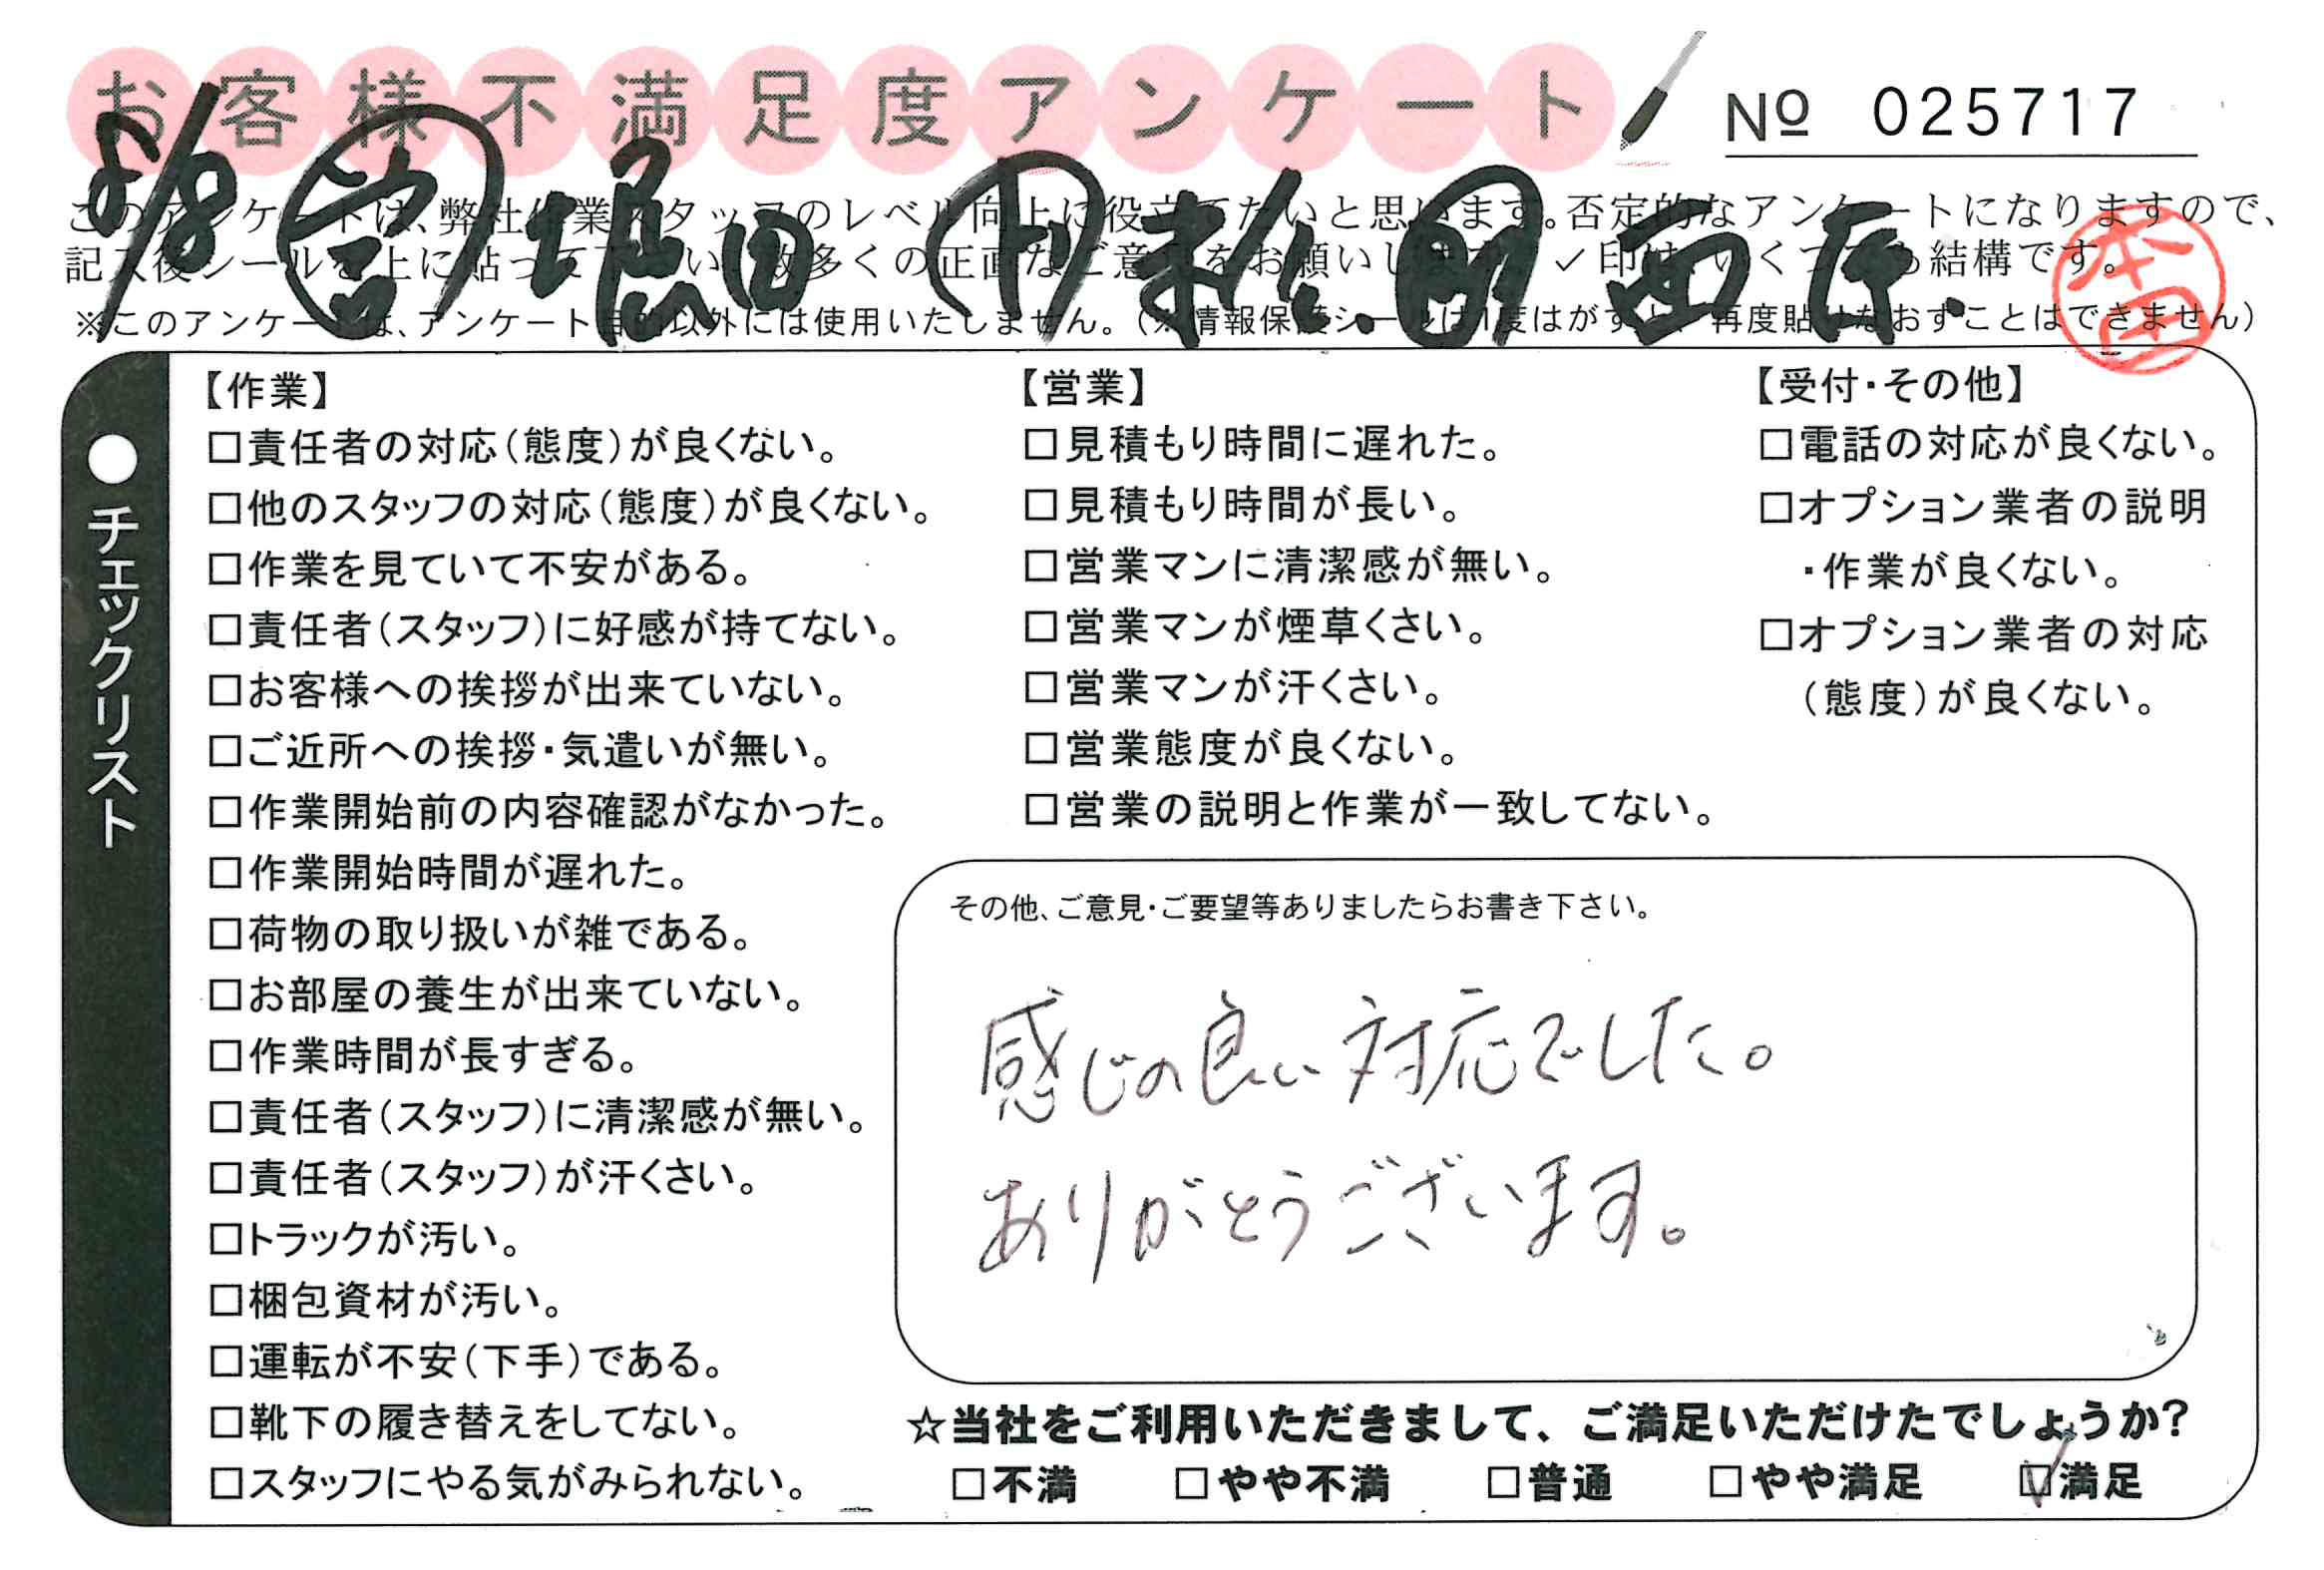 お客様不満足度アンケート
№ 025717
8/8 堀田 西
本田
このアンケートは、弊社作業スタッフのレベル向上に役立てたいと思います。否定的なアンケートになりますので、
記入後シールを上に貼って下さい。数多くの正直なご意見をお願いします。✓印は、いくつでも結構です。
※このアンケートは、アンケート目的以外には使用いたしません。(※情報保護シールは1度はがすと、再度貼りなおすことはできません)
●チェックリスト
【作業】
□責任者の対応(態度)が良くない。
□他のスタッフの対応(態度)が良くない。
□作業を見ていて不安がある。
□責任者(スタッフ)に好感が持てない。
□お客様への挨拶が出来ていない。
□ご近所への挨拶・気遣いが無い。
□作業開始前の内容確認がなかった。
□作業開始時間が遅れた。
□荷物の取り扱いが雑である。
□お部屋の養生が出来ていない。
□作業時間が長すぎる。
□責任者(スタッフ)に清潔感が無い。
□責任者(スタッフ)が汗くさい。
□トラックが汚い。
□梱包資材が汚い。
□運転が不安(下手)である。
□靴下の履き替えをしてない。
□スタッフにやる気がみられない。
【営業】
□見積もり時間に遅れた。
□見積もり時間が長い。
□営業マンに清潔感が無い。
□営業マンが煙草くさい。
□営業マンが汗くさい。
□営業態度が良くない。
□営業の説明と作業が一致してない。
【受付・その他】
□電話の対応が良くない。
□オプション業者の説明
・作業が良くない。
□オプション業者の対応
(態度)が良くない。
その他、ご意見・ご要望等ありましたらお書き下さい。
感じの良い対応でした。
ありがとうございます。
☆当社をご利用いただきまして、ご満足いただけたでしょうか?
□不満 □やや不満 □普通 □やや満足 ☑満足